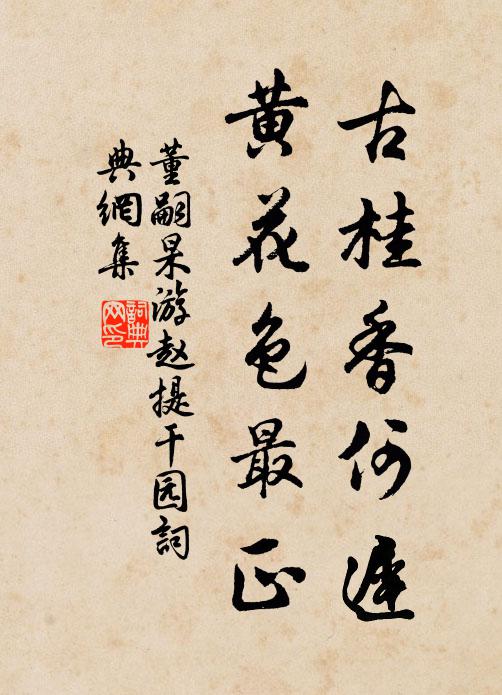 古桂香何遲
黄花色最正
董嗣杲游赵提干园詞
典網集
詞典
网印